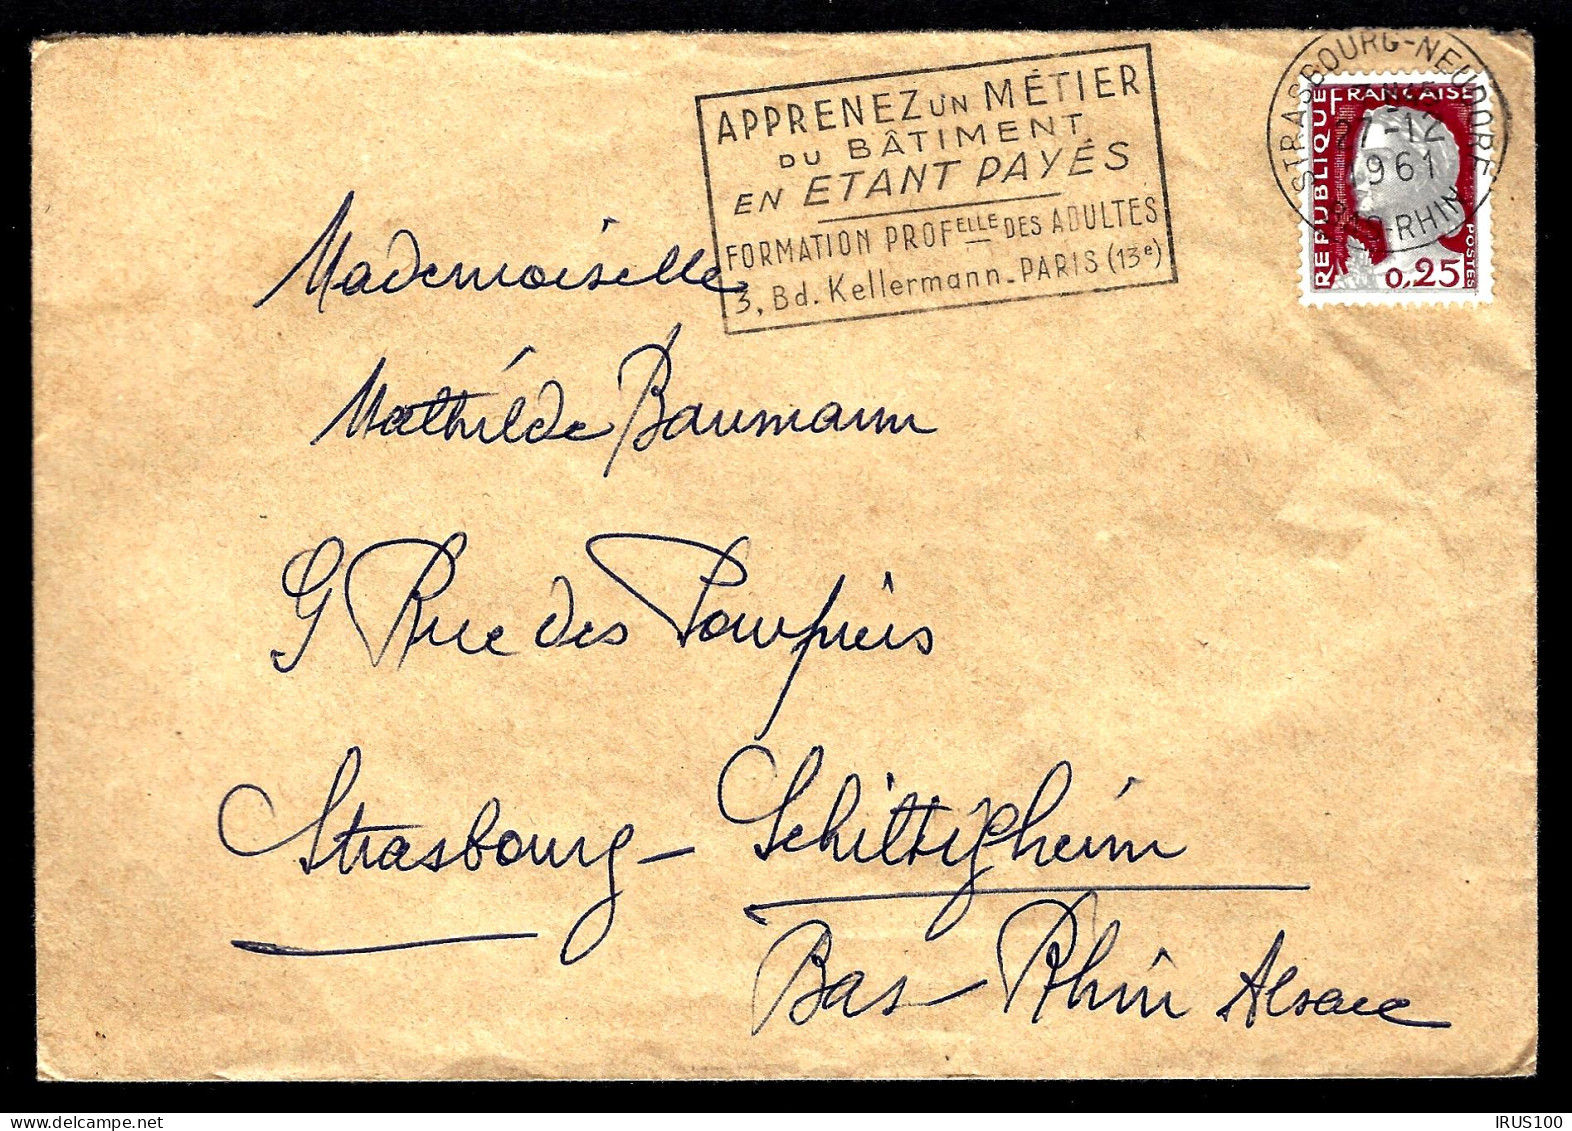 APPRENEZ UN MÉTIER
DU BÂTIMENT
EN ETANT PAYÉS
FORMATION PROFELLE DES ADULTES
3, Bd. Kellermann - PARIS (13e)
STRASBOURG-NEUDORF
27-12
1961
BAS-RHIN
REPUBLIQUE FRANÇAISE
POSTES
0,25
Mademoiselle
Mathilde Baumann
9 Rue des Pompiers
Strasbourg - Schiltigheim
Bas-Rhin Alsace
IRUS100